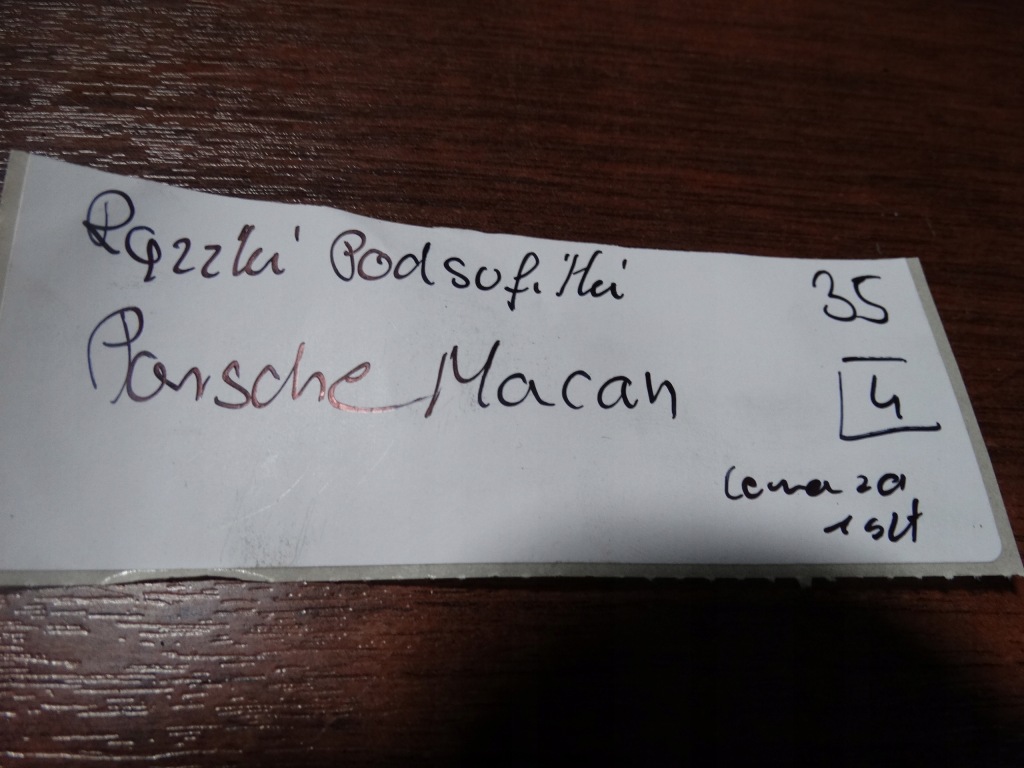 Rączki Podsufitki
35
Porsche Macan
4
Cena za
1 szt